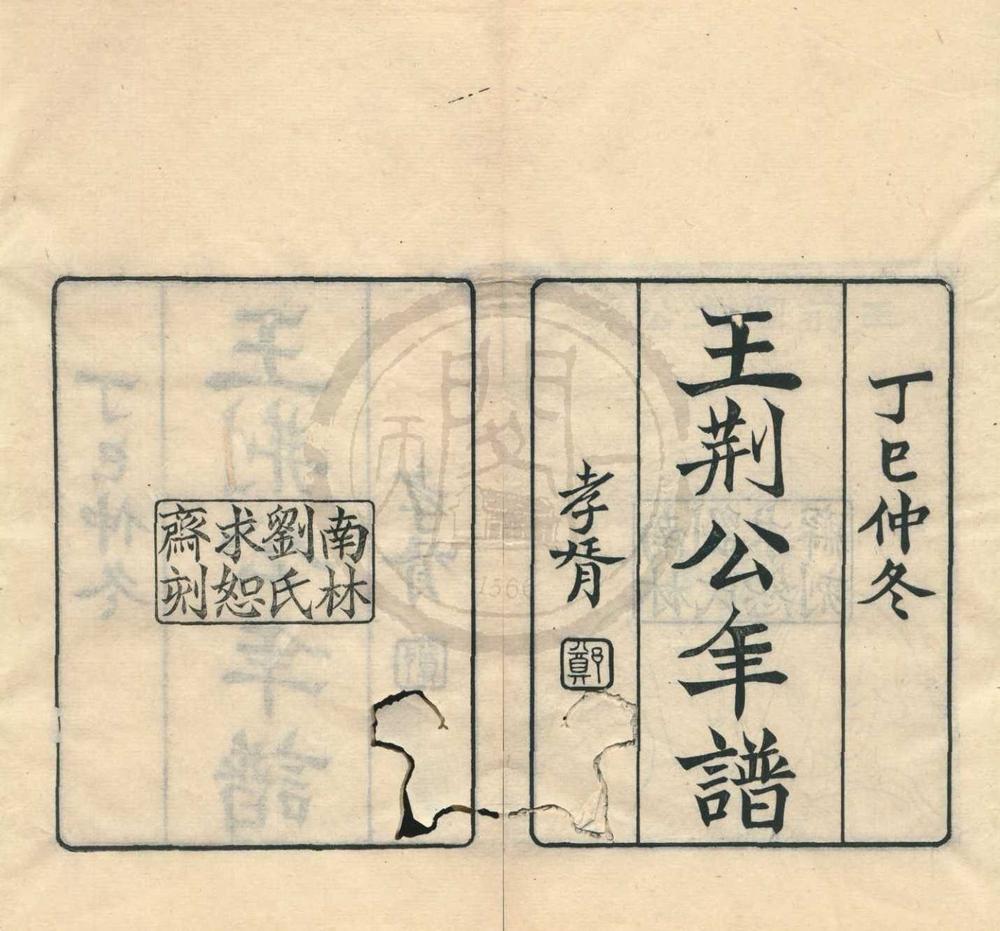 丁巳仲冬
王荆公年譜
孝胥
鄭
南林
劉氏
求恕
齋刻